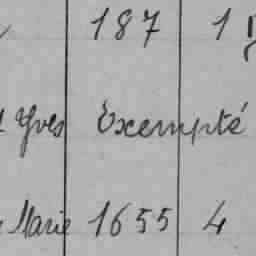 187 1
Yves Exempté
Marie 1655 4